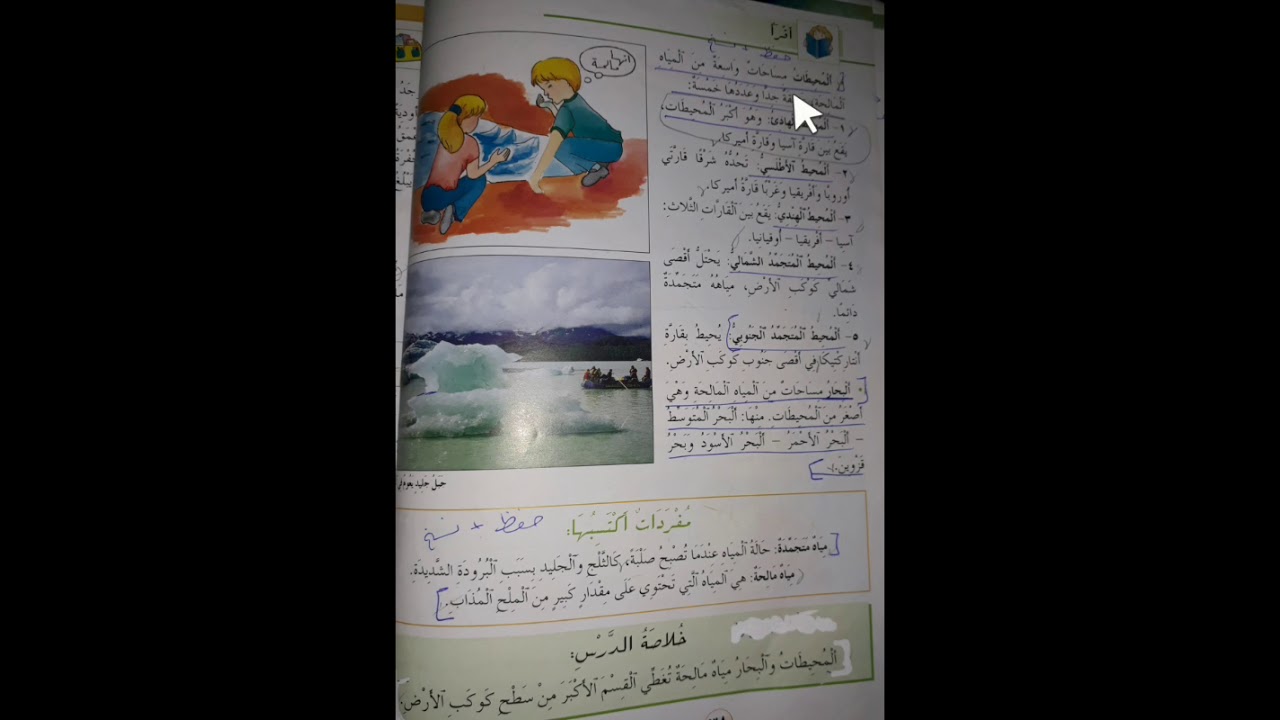 أقرأ
حفظ + نسخ
المُحيطاتُ مساحاتٌ واسعةٌ منَ المياهِ
المالحةِ جدًّا وعددُها خمسةٌ:
١- الهادئُ: وهُوَ أكبرُ المُحيطاتِ،
يقعُ بينَ قارّةِ آسيا وقارّةِ أميركا.
٢- المُحيطُ الأطلسيُّ: تحُدُّهُ شرقًا قارّتي
أوروبّا وأفريقيا وغربًا قارّةُ أميركا.
٣- المُحيطُ الهنديُّ: يقعُ بينَ القارّاتِ الثّلاثِ:
آسيا – أفريقيا – أوقيانيا.
٤- المُحيطُ المُتجمِّدُ الشّماليُّ: يحْتلُّ أقصى
شماليِّ كوكبِ الأرضِ، مياهُهُ متجمِّدةٌ
دائمًا.
٥- المُحيطُ المُتجمِّدُ الجنوبيُّ: يُحيطُ بقارّةِ
أنتاركتيكا في أقصى جنوبِ كوكبِ الأرضِ.
البحارُ مساحاتٌ منَ المياهِ المالحةِ وهْيَ
أصغرُ منَ المُحيطاتِ. منها: البحرُ المتوسّطُ
– البحرُ الأحمرُ – البحرُ الأسودُ وبحرُ
قزوين.
إنها
مالحة
جبلُ جليدٍ يعومُ
مُفْرَداتٌ أكْتَسِبُها:
حفظ + نسخ
مياهٌ متجمّدةٌ: حالةُ المياهِ عندما تُصبحُ صلبةً، كالثّلجِ والجليدِ بسببِ البُرودةِ الشّديدةِ.
مياهٌ مالحةٌ: هيَ المياهُ الّتي تحْتوي على مِقْدارٍ كبيرٍ مِنَ المِلْحِ المُذابِ.
خُلاصةُ الدّرْسِ:
المُحيطاتُ والبحارُ مياهٌ مالحةٌ تُغطّي القِسْمَ الأكْبرَ مِنْ سطْحِ كوْكبِ الأرْضِ.